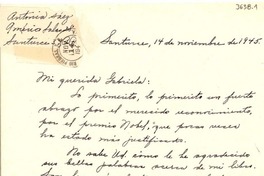 3658.1
Antonia Sáez
América
Santurce
Santurce, 14 de noviembre de 1945.
Mi querida Gabriela:
Lo primerito, lo primerito un fuerte
abrazo por el merecido reconocimiento,
por el premio Nobel, que pocas veces
ha estado más justificado.
No sabe Ud. cómo le he agradecido
sus bellas palabras acerca de mi libro.